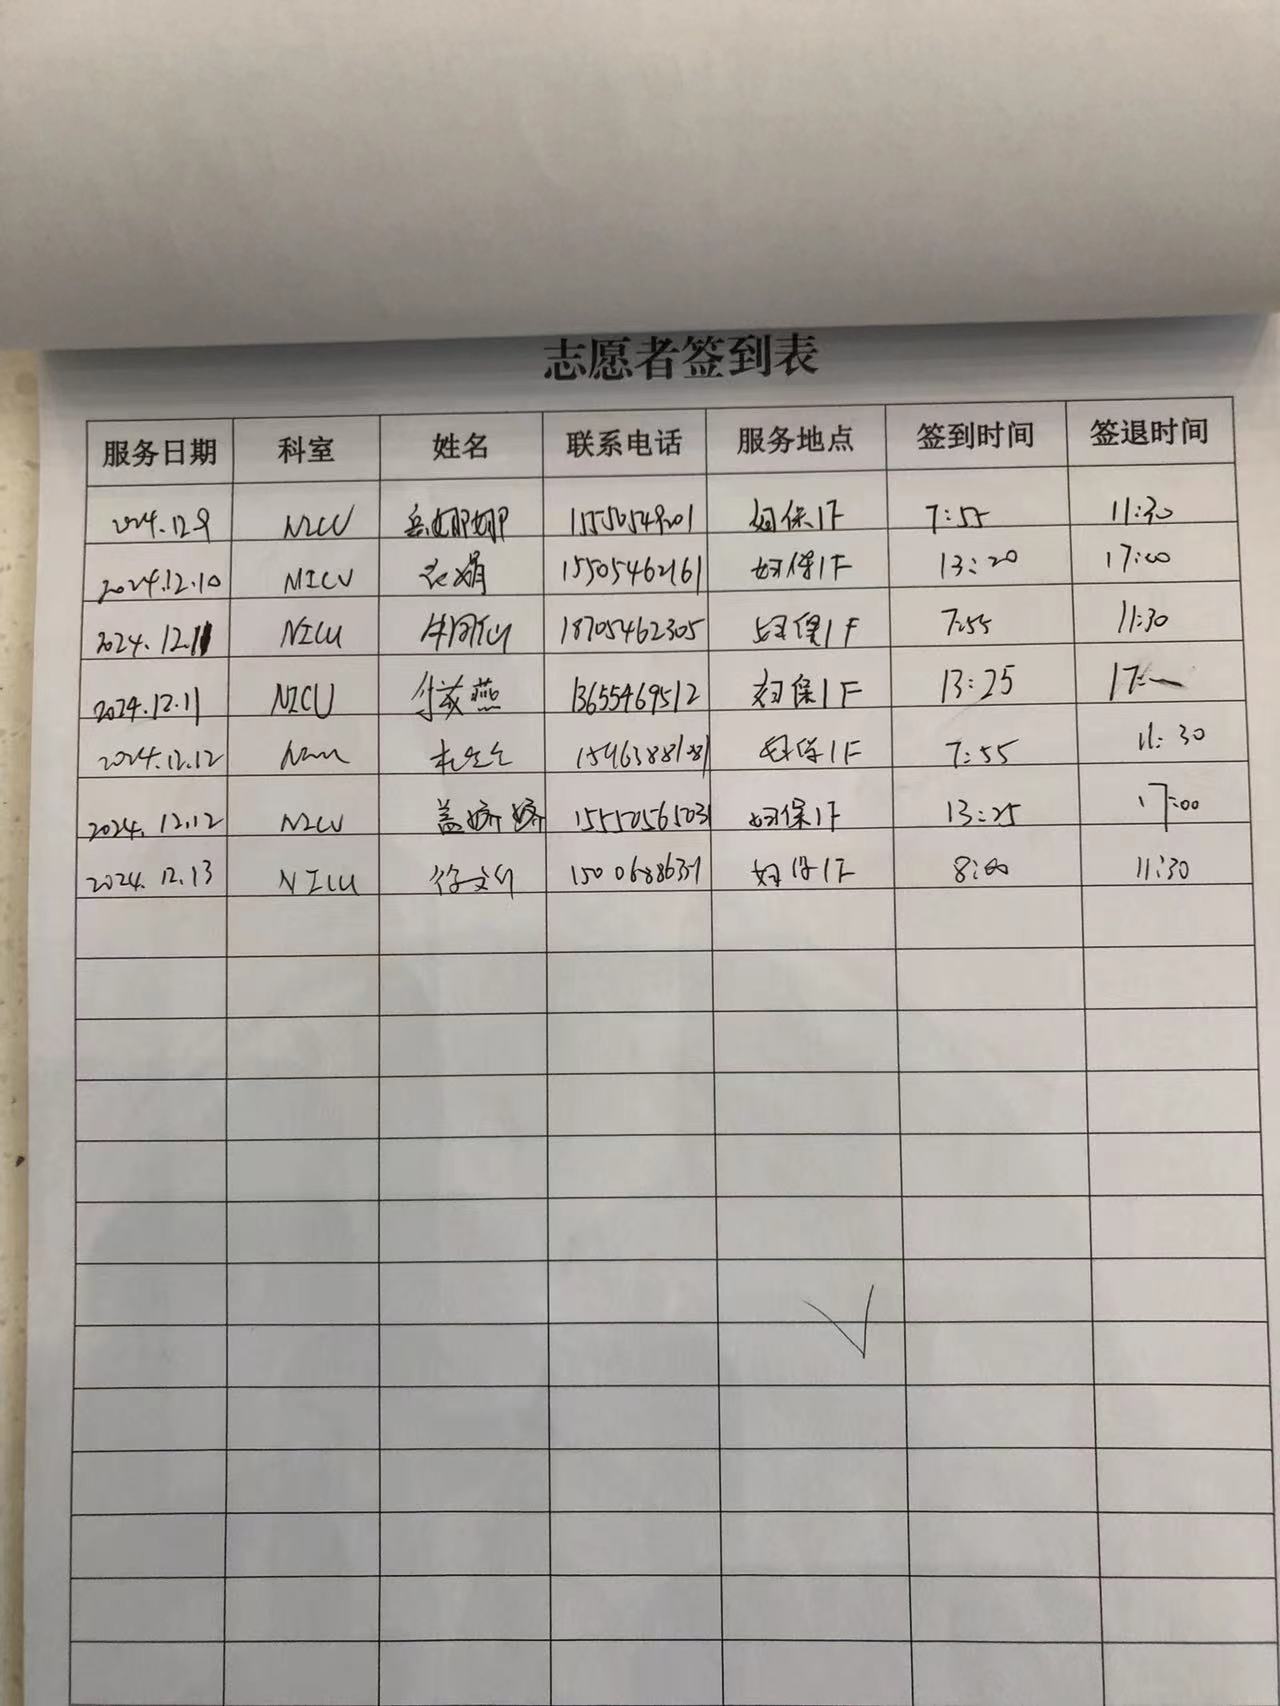 志愿者签到表
服务日期 科室 姓名 联系电话 服务地点 签到时间 签退时间
2024.12.9 NICU 岳娜娜 15550549201 妇保1F 7:55 11:30
2024.12.10 NICU 娟 15505462161 妇保1F 13:20 17:00
2024.12.11 NICU 18705462305 妇保1F 7:55 11:30
2024.12.11 NICU 燕 13655469512 妇保1F 13:25 17:
2024.12.12 妇保1F 7:55 11:30
2024.12.12 NICU 盖娇娇 妇保1F 13:25 17:00
2024.12.13 NICU 徐 妇保1F 8:00 11:30